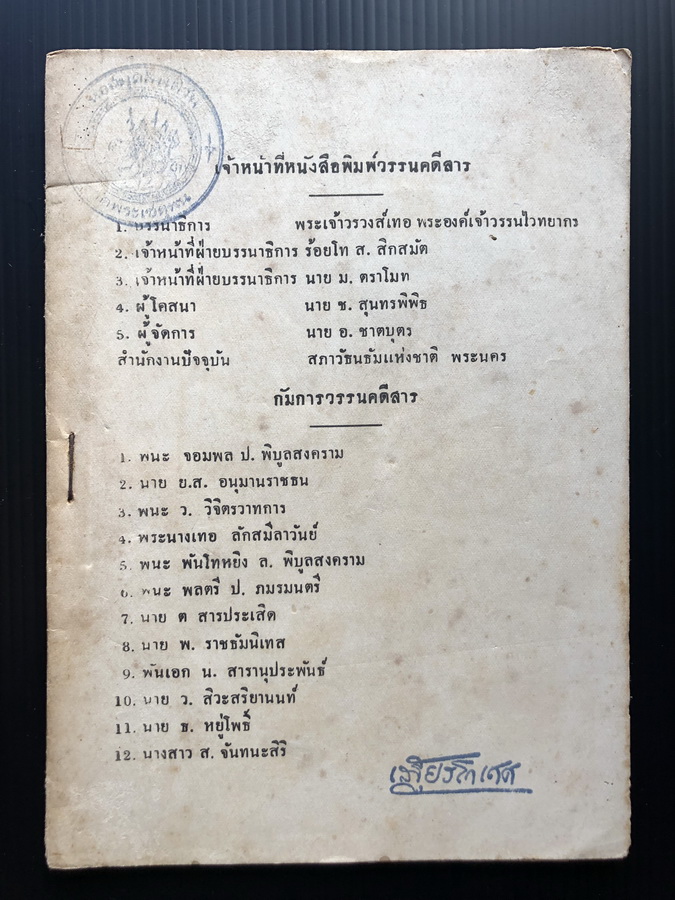 เจ้าหน้าที่หนังสือพิมพ์วรรนคดีสาร
1. บรรนาธิการ พระเจ้าวรวงส์เทอ พระองค์เจ้าวรรนไวทยากร
2. เจ้าหน้าที่ฝ่ายบรรนาธิการ ร้อยโท ส. สิกสมัต
3. เจ้าหน้าที่ฝ่ายบรรนาธิการ นาย ม. ตราโมท
4. ผู้โคสนา นาย ช. สุนทรพิพิธ
5. ผู้จัดการ นาย อ. ชาตบุตร
สำนักงานปัจจุบัน สภาวัธนธัมแห่งชาติ พระนคร
กัมการวรรนคดีสาร
1. พนะ จอมพล ป. พิบูลสงคราม
2. นาย ย.ส. อนุมานราชธน
3. พนะ ว. วิจิตรวาทการ
4. พระนางเทอ ลักสมีลาวันย์
5. พนะ พันโทหยิง ล. พิบูลสงคราม
6. พนะ พลตรี ป. ภมรมนตรี
7. นาย ต สารประเสิด
8. นาย พ. ราชธัมนิเทส
9. พันเอก น. สารานุประพันธ์
10. นาย ว. สิวะสริยานนท์
11. นาย ธ. หยู่โพธิ์
12. นางสาว ส. จันทนะสิริ